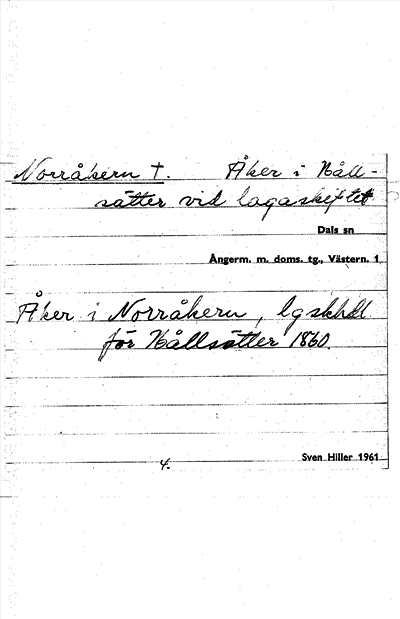 Norråkern †. Åker i Håll-
sätter vid lagaskiftet
Dals sn
Ångerm. m. doms. tg., Västern. 1
Åker i Norråkern, lgskhdl
för Hållsätter 1860.
4.
Sven Hiller 1961